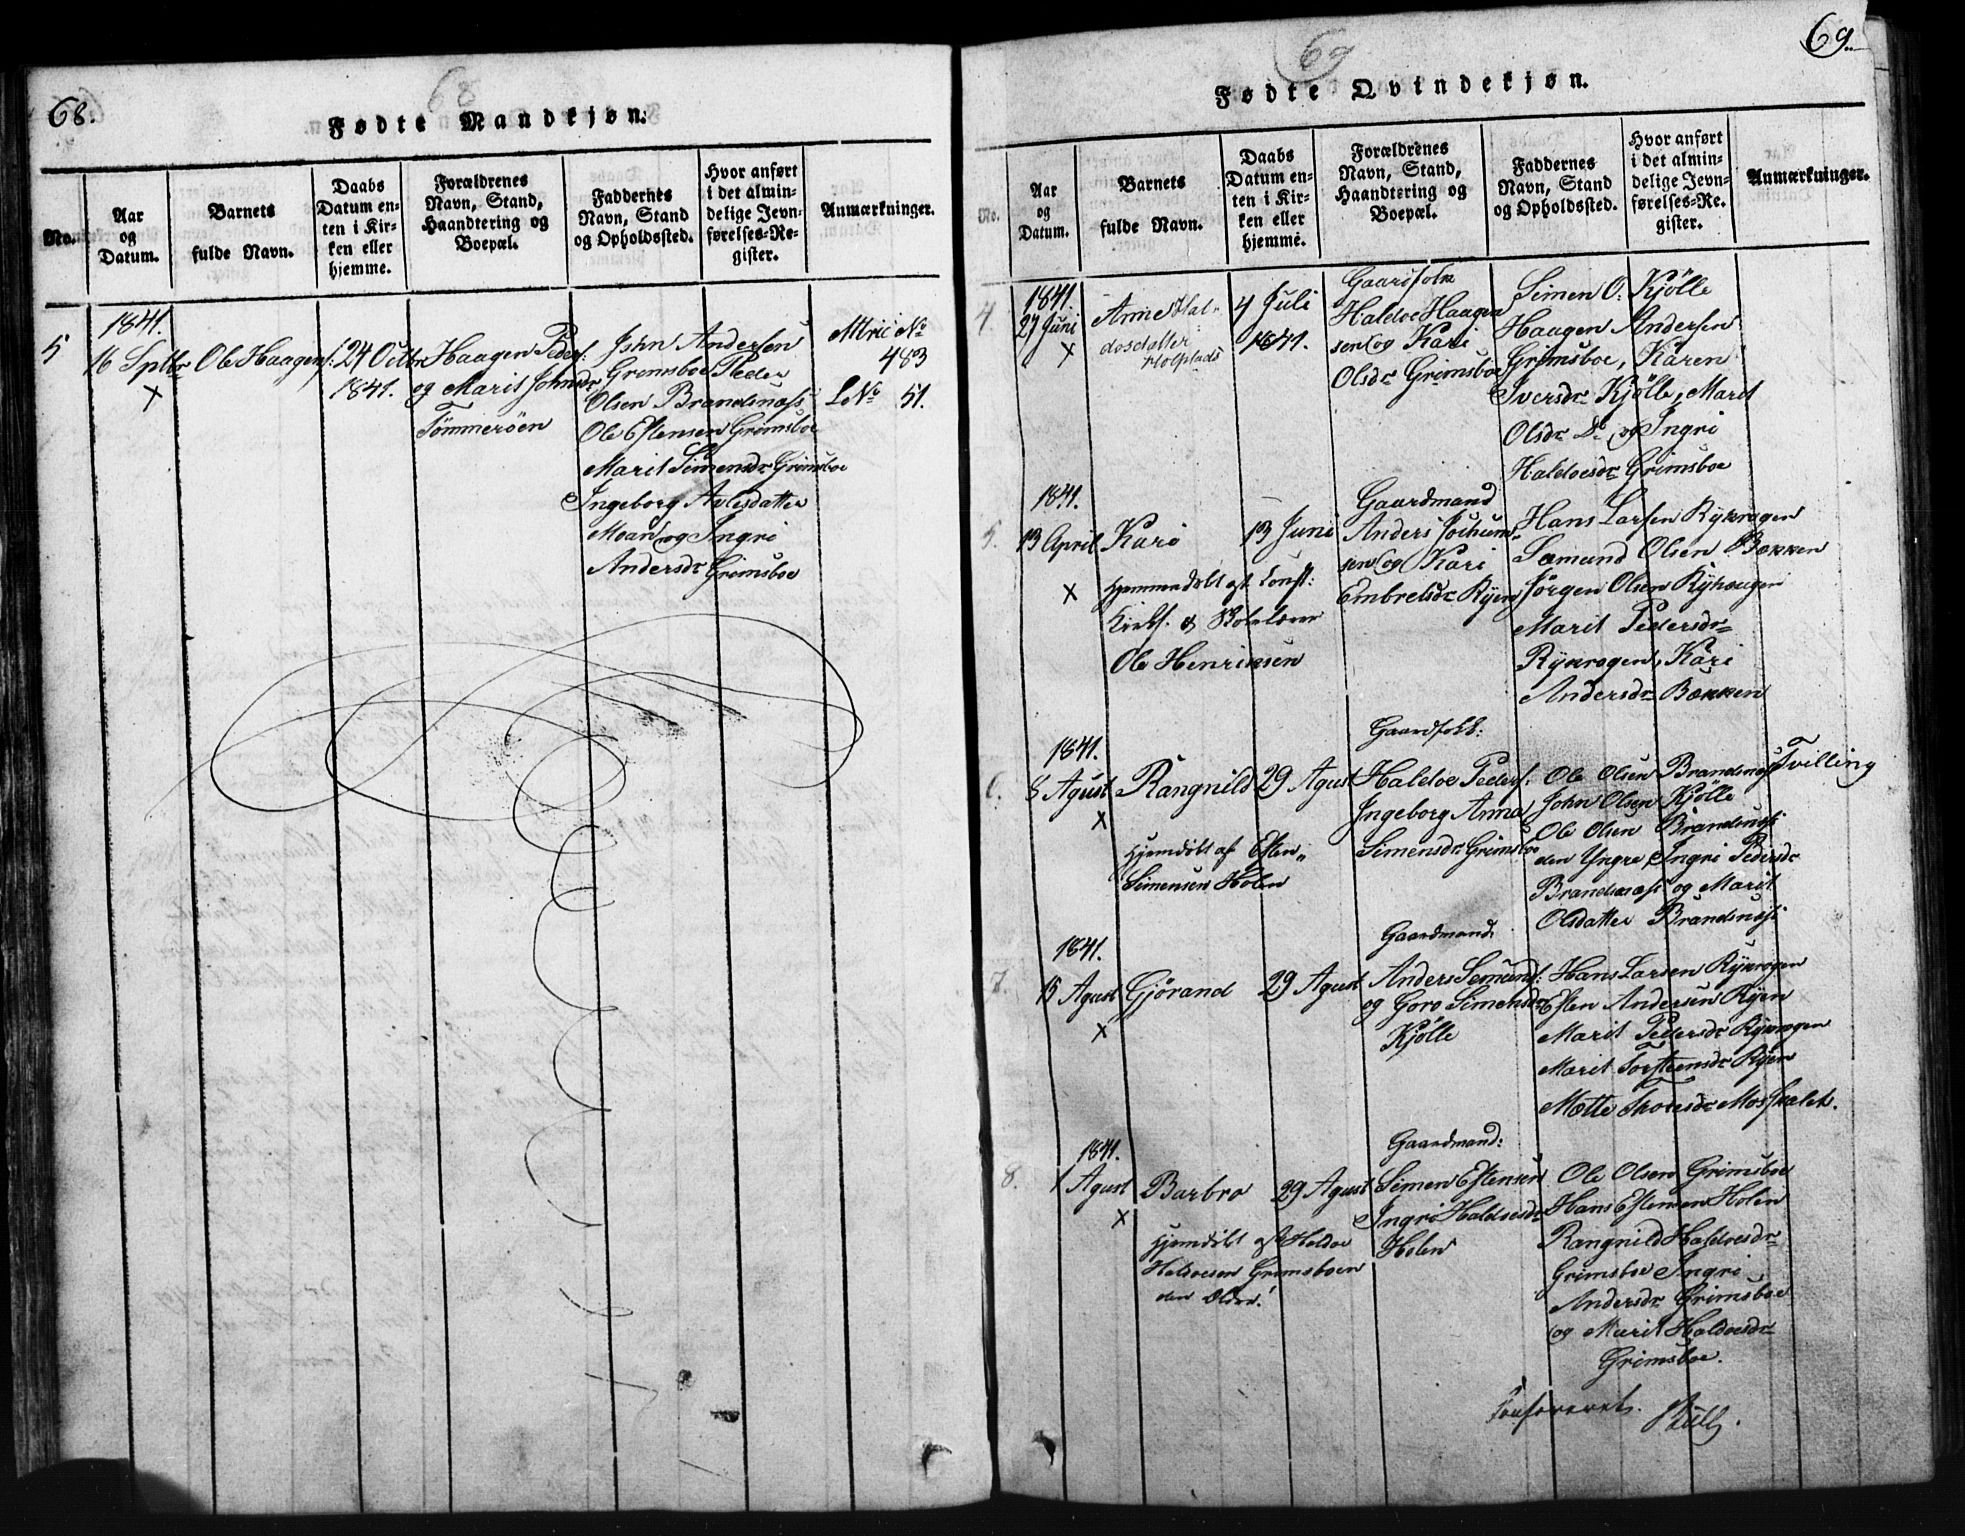 68.
68
Fødte Mandkjøn.
No.
Aar
og
Datum.
Barnets
fulde Navn.
Daabs
Datum en-
ten i Kir-
ken eller
hjemme.
Forældrenes
Navn, Stand,
Haandtering og
Boepæl.
Faddernes
Navn, Stand
og Opholdssted.
Hvor anført
i det almin-
delige Jevn-
førelses-Re-
gister.
Anmærkninger.
5
1841.
16 Sptbr
x
Ole Haagens:
24 Octbr
1841.
Haagen Peders:
og Marit Johnsdr
Tømmerøen
John Andersen
Grimsboe Peder
Olsen Brandsnæss
Ole Estensen Grimsboe
Marit Simensdr Grimsboe
Ingeborg
Moan og Ingri
Andersdr Grimsboe
No
483
LNo 51.
69.
69
Fødte Qvindekjøn.
No.
Aar
og
Datum.
Barnets
fulde Navn.
Daabs
Datum en-
ten i Kir-
ken eller
hjemme.
Forældrenes
Navn, Stand,
Haandtering og
Boepæl.
Faddernes
Navn, Stand
og Opholdssted.
Hvor anført
i det almin-
delige Jevn-
førelses-Re-
gister.
Anmærkninger.
4.
1841.
27 Juni
x
Anne Hal-
dosdatter
4 Juli
1841.
Gaardfolk
Haldoe Haagen
sen og Kari
Olsdr Grimsboe
Simen O: Kjölle
Haagen Andersen
Grimsboe, Karen
Iversdr Kjölle, Marit
Olsdr Do og Ingri
Haldoesdr Grimsboe
5.
1841.
13 April
x
Kari
Hjemmedøbt af Const:
Kirks. & Skolelærer
Ole Henriksen
13 Juni
Gaardmand
Anders Jochum-
sen og Kari
Embretsdr Ryen
Hans Larsen Ryhaugen
Semund Olsen Bækken
Jörgen Olsen Ryhaugen
Marit Pedersdr
Ryhaugen, Kari
Andersdr Bækken
6.
1841.
5 Agust
x
Rangnild
Hjemdöbt af Esten
Simensen Holen
29 Agust
Gaardfolk:
Haldoe Peders:
Ingeborg Anna
Simensdr Grimsboe
Ole Olsen Brandsnæss
John Olsen Kjölle
Ole Olsen Brandsnæss
den Yngre, Ingri Pedersdr
Brandsnæss og Marit
Olsdatter Brandsnæss
Tvilling
7.
1841.
15 Agust
x
Gjörand
29 Agust
Gaardmand
Anders Semunds:
og Goro Simensdr
Kjölle
Hans Larsen Ryhaugen
Esten Andersen Ryen
Marit Pedersdr Ryhaugen
Marit Torstensdr Ryen
Mette Thoresdr Moskalet.
8.
1841.
1 Agust
x
Barbro
Hjemdöbt af Haldoe
Haldoesen Grimsboen
den Ældre!
29 Agust
Gaardmand:
Simen Estensen
Ingri Haldoesdr
Holen
Ole Olsen Grimsboe
Hans Estensen Holen
Rangnild Haldoesdr
Grimsboe Ingri
Andersdr Grimsboe
og Marit Haldoesdr
Grimsboe.
Confereret.